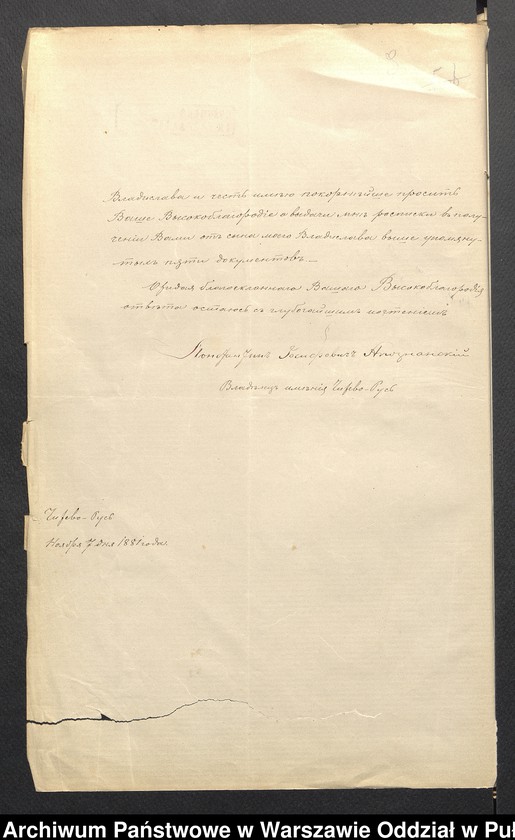 Владислава и честь имею покорнѣйше просить
Ваше Высокоблагородіе о выдачи мнѣ росписки в полу-
ченіи Вами отъ сына моего Владислава выше упомяну-
тыхъ пяти документовъ.
Ожидая благосклоннаго Вашаго Высокоблагородія
отвѣта остаюсь съ глубочайшимъ почтеніемъ
Владѣлецъ имѣнія Чижево-Русь
Чижево-Русь
Ноября 7 дня 1881 года.
Archiwum Państwowe w Warszawie Oddział w Pu